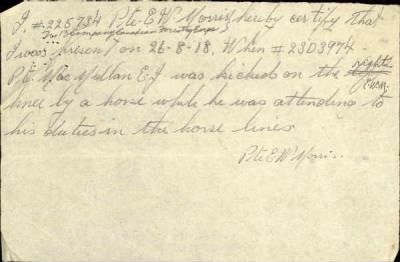 I, #225734 Pte E W Morris, hereby certify that
Company Canadian Forestry Corps
I was present on 26-8-18, When #2303974
Pte MacMillan E.J. was kicked on the right
E.W.M.
knee by a horse while he was attending to
his duties in the horse lines
Pte E W Morris.